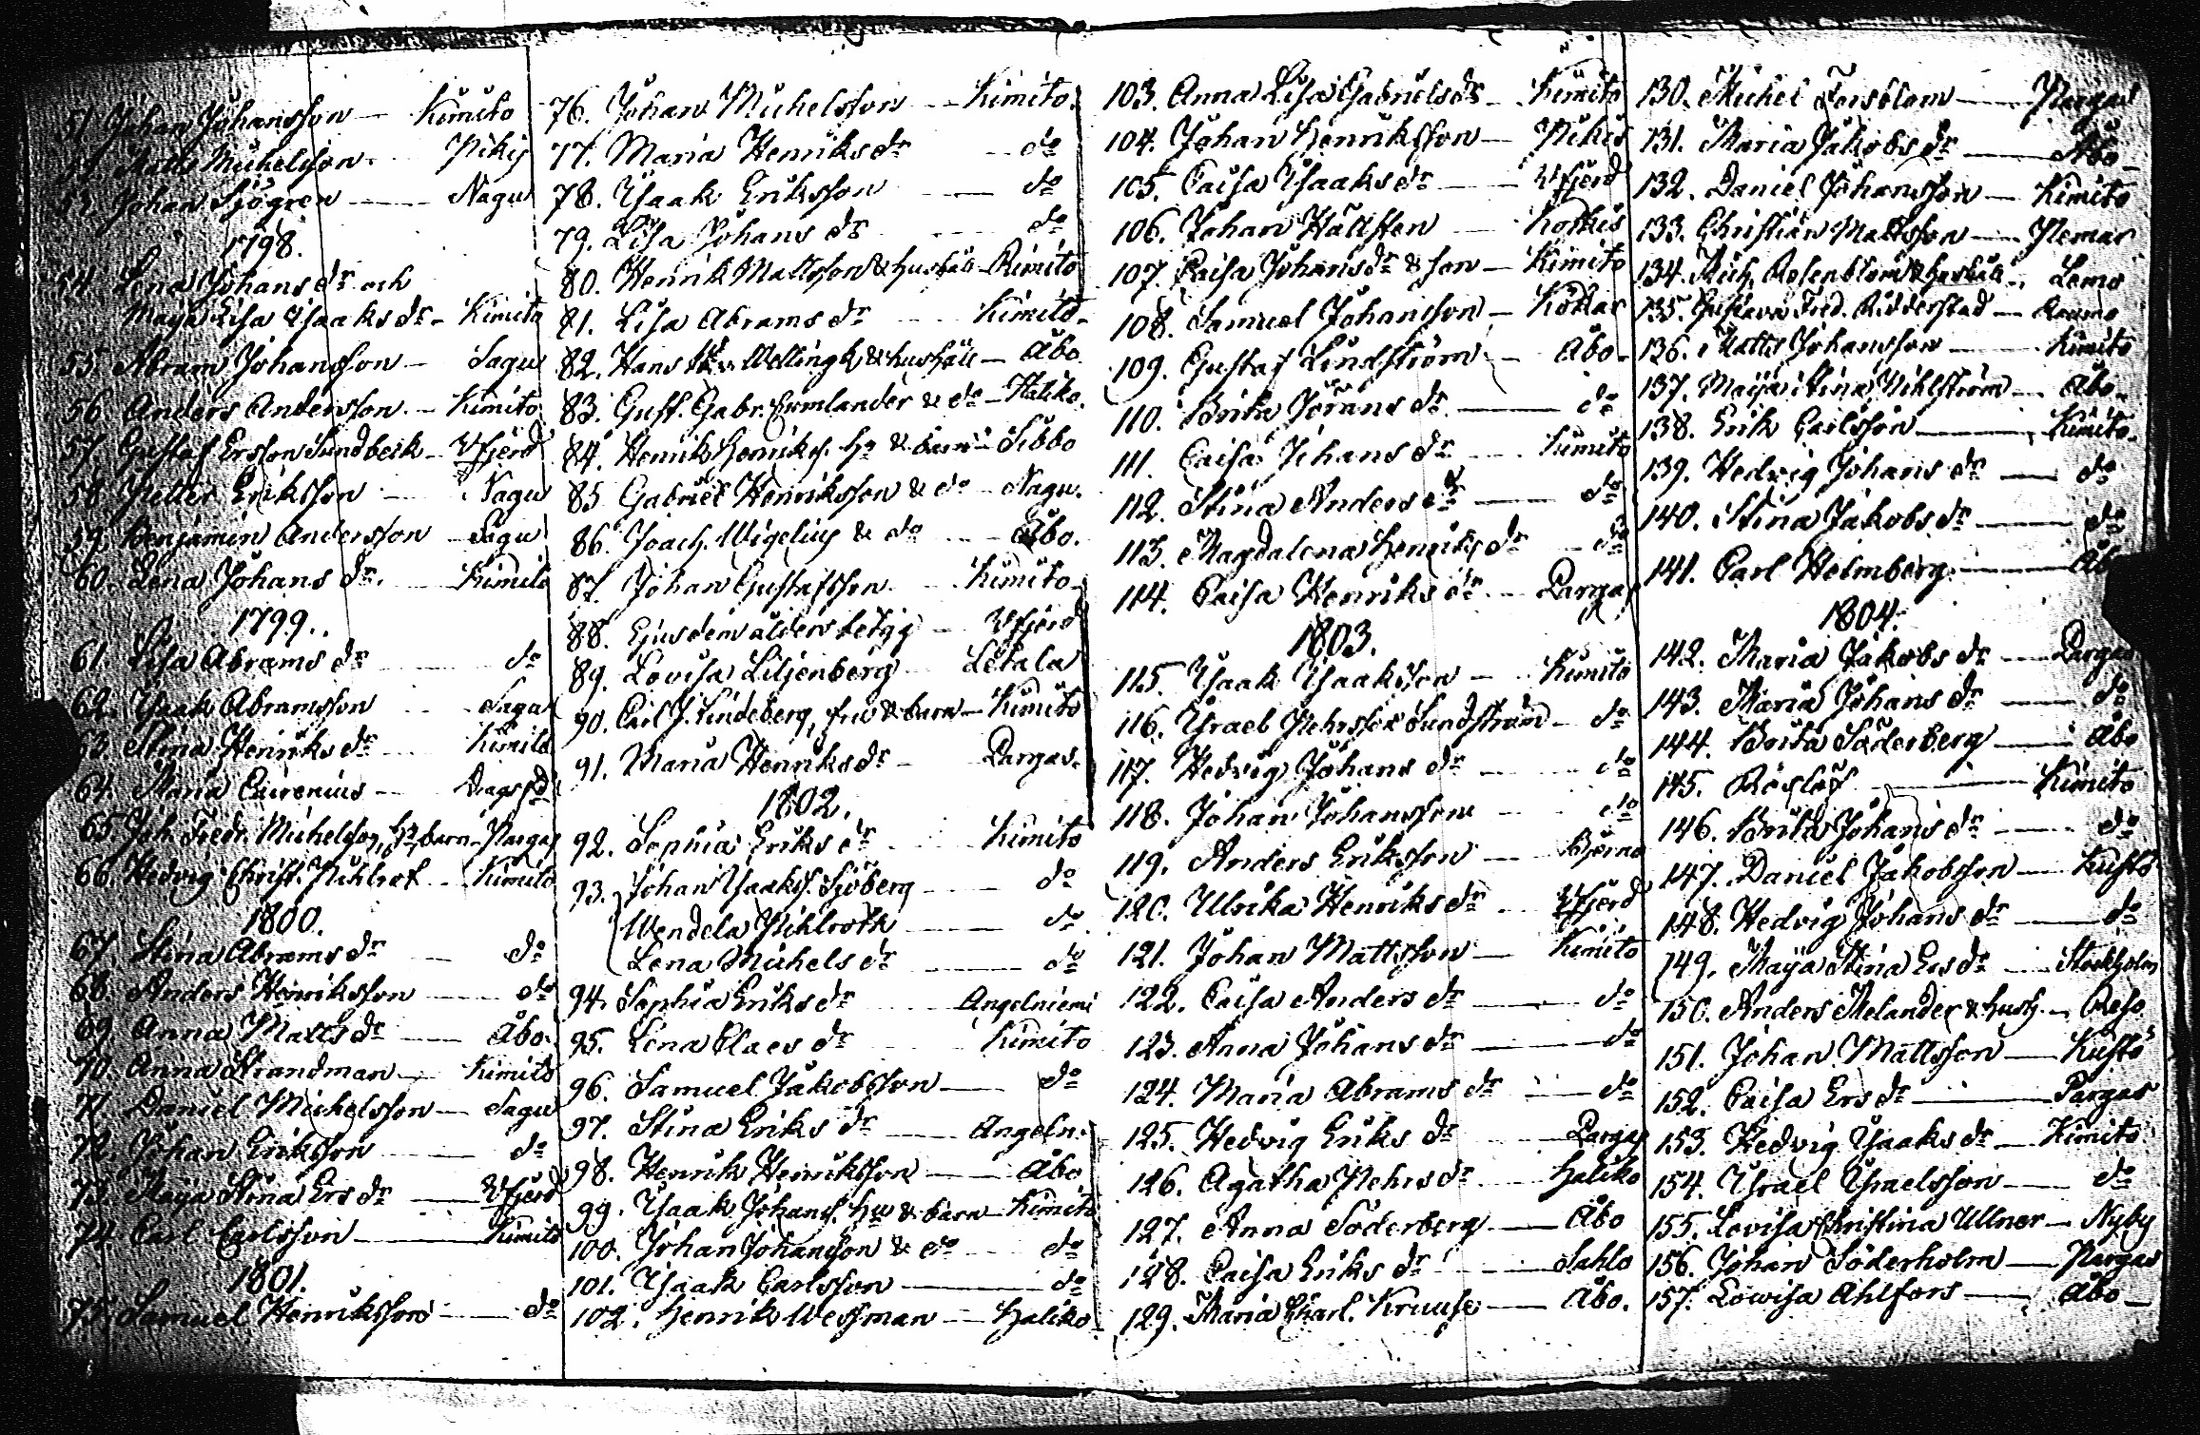 51. Johan Johansson — Kimito
52. Matts Michelsson. Pikis
53. Johan Sjögren — Nagu
1798.
54. Lena Johans dr och
Maja Lisa Isaaks dr - Kimito
55. Abram Johansson - Sagu
56. Anders Andersson. - Kimito
57. Gustaf Ersson Sundbeck - Vfjerd
58. Petter Eriksson - Nagu
59. Benjamin Andersson - Sagu
60. Lena Johans dr. - Kimito
1799.
61. Lisa Abrams dr - do
62. Isaak Abramsson - Sagu
63. Stina Henriks dr - Kimito
64. Maria Eurenius - Dragsfd
65. Joh. Fredr. Michelsson, hu, barn - Pargas
66. Hedvig Christ. Pihlrot - Kimito
1800.
67. Stina Abrams dr - do
68. Anders Henriksson - do
69. Anna Matts dr - Åbo.
70. Anna Strandman - Kimito
71. Daniel Michelsson - Sagu
72. Johan Eriksson - do
73. Maja Stina Ers dr - Vfjerd
74. Carl Carlsson - Kimito
1801.
75. Samuel Henriksson - do
76. Johan Michelsson - Kimito.
77. Maria Henriks dr - do
78. Isaak Eriksson - do
79. Lisa Johans dr - do
80. Henrik Mattsson & hushåll - Rimito
81. Lisa Abrams dr - Kimito.
82. Hans Wellingk & hushåll - Åbo
83. Gust. Gabr. Ermlander & do - Haliko.
84. Henrik Henrikss. hu & barn - Sibbo
85. Gabriel Henriksson & do - Nagu.
86. Joach. Wigelius & do - Åbo.
87. Johan Gustafsson - Kimito.
88. Ejusdem ålders betyg - Vfjerd
89. Lovisa Liljenberg - Letala
90. Carl J. Lindeberg, fru & barn - Kimito
91. Maria Henriks dr - Pargas.
1802.
92. Sophia Eriks dr - Kimito
93. Johan Isaakss. Sjöberg - do
Wendela Pihlroth - do
Lena Michels dr - do
94. Sophia Eriks dr - Angelniemi
95. Lena Claes dr - Kimito
96. Samuel Jakobsson - do
97. Stina Eriks dr - Angeln.
98. Henrik Henriksson - Åbo
99. Isaak Johanss. hu & barn - Kimito
100. Johan Johansson & do - do
101. Isaak Carlsson - do
102. Henrik Wessman - Haliko
103. Anna Lisa Gabriels dr - Kimito
104. Johan Henriksson - Pikis
105. Caisa Isaaks dr - Vfjerd
106. Johan Hällsten - Korkis
107. Caisa Johans dr & son - Kimito
108. Samuel Johansson - Kökar
109. Gustaf Lindström - Åbo
110. Brita Jörans dr - do
111. Caisa Johans dr - Kimito
112. Stina Anders dr - do
113. Magdalena Henriks dr - do
114. Caisa Henriks dr - Pargas
1803.
115. Isaak Isaaksson - Kimito
116. Israel Pehrsson Sundström - do
117. Hedvig Johans dr - do
118. Johan Johansson - do
119. Anders Eriksson - Bjerno
120. Ulrika Henriks dr - Vfjerd
121. Johan Mattsson - Kimito
122. Caisa Anders dr - do
123. Anna Johans dr - do
124. Maria Abrams dr - do
125. Hedvig Eriks dr - Pargas
126. Agatha Pehrs dr - Haliko
127. Anna Söderberg - Åbo
128. Caisa Eriks dr - Sahlo
129. Maria Charl. Kruuse - Åbo.
130. Michel Forsblom - Pargas
131. Maria Jakobs dr - Åbo
132. Daniel Johansson - Kimito
133. Christian Mattsson - Pemar
134. Mich. Rosenblom & hushåll - Lemo
135. Gustava Fred. Ridderstad - Raumo
136. Matts Johansson - Kimito
137. Maija Stina Pihlström - Åbo
138. Erik Carlsson - Kimito.
139. Hedvig Johans dr - do
140. Stina Jakobs dr - do
141. Carl Helmberg - Åb
1804.
142. Maria Jakobs dr - Pargas
143. Maria Johans dr - do
144. Brita Söderberg - Åbo
145. Röslöf - Kimito
146. Brita Johans dr - do
147. Daniel Jakobsson - Kustö
148. Hedvig Johans dr - do
149. Maija Stina Ers dr - Stockholm
150. Anders Melander & hush. - Reso
151. Johan Mattsson - Kustö
152. Caisa Ers dr - Pargas
153. Hedvig Isaaks dr - Kimito
154. Israel Israelsson - do
155. Lovisa Christina Ullner - Nyby
156. Johan Söderholm - Pargas
157. Lovisa Ahlfors - Åbo